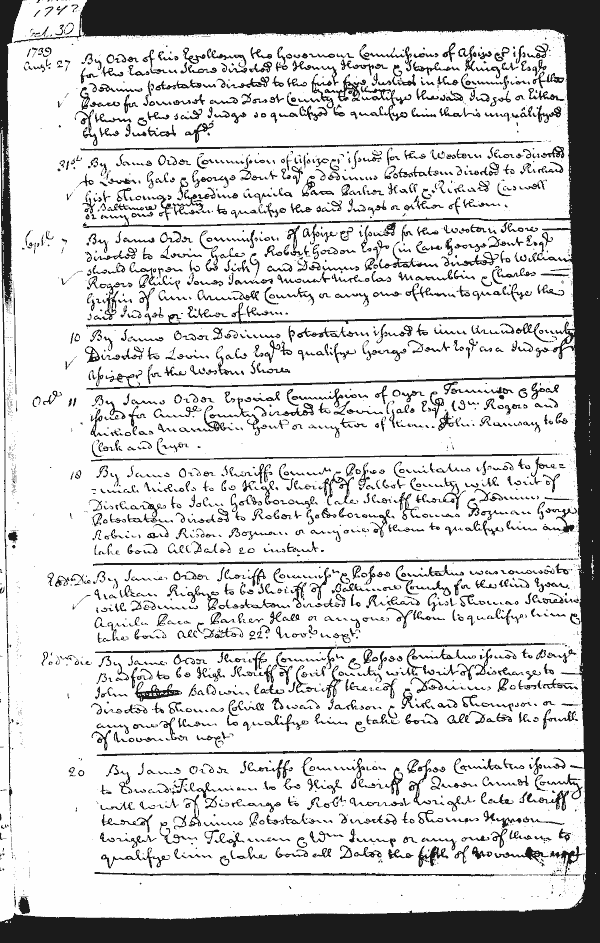 1747
Oct. 30
1739
Augt. 27 By Order of his Excellency the Governour Commissions of Assize &c issued
for the Eastern Shore directed to Henry Hooper & Stephen Knight Esqrs
& dedimus potestatem directed to the first five Justices in the Commission of the
or any of them
Peace for Somerset and Dorset County to qualifye the said Judges or Either
of them & the said Judge so qualified to qualifye him that is unqualifyed
by the Justices afd.
31st By Same Order Commission of Assize &c issued for the Western Shore directed
to Levin Gale & George Dent Esqrs & dedimus Potestatem directed to Richard
Gist Thomas Sheredine Aquila Paca Parker Hall & Richard Caswell
of Baltimore County
or any one of them to qualify the said Judges or either of them.
Septr. 7 By Same Order Commission of Assize &c issued for the Western Shore
directed to Levin Gale & Robert Gordon Esqrs (in Case George Dent Esqr
should happen to be Sick) and Dedimus Potestatem directed to William
Rogers Philip Jones James Mouat Nicholas Maccubbin & Charles
Griffin of Ann Arundell County or any one of them to qualifye the
said Judges or Either of them.
10 By Same Order Dedimus potestatem issued to Ann Arundell County
Directed to Levin Gale Esqr to qualifye George Dent Esqr as a Judge of
Assize &c for the Western Shore
Octr. 11 By Same Order Especial Commission of Oyer & Terminer & Goal
issued for County directed to Levin Gale Esqr Wm. Rogers and
Nicholas Maccubbin Gent or any two of them. John Ramsay to be
Clerk and Cryer.
18 By Same Order Sheriffs Commn. & Posse Comitatus issued to Jere=
=miah Nichols to be High Sheriff of Talbot County with Writ of
Discharge to John Goldsborough late Sheriff thereof & Dedimus
Potestatem directed to Robert Goldsborough Thomas Bozman George
Robins and Risdon Bozman or any one of them to qualify him and
take bond All Dated 20 instant.
Eod. Die By Same Order Sheriffs Commissn. & Posse Comitatus was renewed to
Nathan Rigbye to be Sheriff of Baltimore County for the third Year
with Dedimus Potestatem directed to Richard Gist Thomas Sheredine
Aquila Paca & Parker Hall or any one of them to qualifye him &
take bond All Dated 22d Novr. next.
Eodm. die By Same Order Sheriffs Commissn. & Posse Comitatus issued to
Bradford to be High Sheriff of Cecil County with Writ of Discharge to
John Baldwin late Sheriff thereof & Dedimus Potestatem
directed to Thomas Colvill Edward Jackson & Richard Thompson or
any one of them to qualifye him & take bond All Dated the fourth
of November next
20 By Same Order Sheriffs Commission & Posse Comitatus issued
to Edward Tilghman to be High Sheriff of Queen Annes County
with Writ of Discharge to Robt. Norrest Wright late Sheriff
thereof & Dedimus Potestatem directed to Thomas Hynson
Wright Wm. Tilghman & Wm. Jump or any one of them to
qualifye him & take bond all Dated the fifth of November next